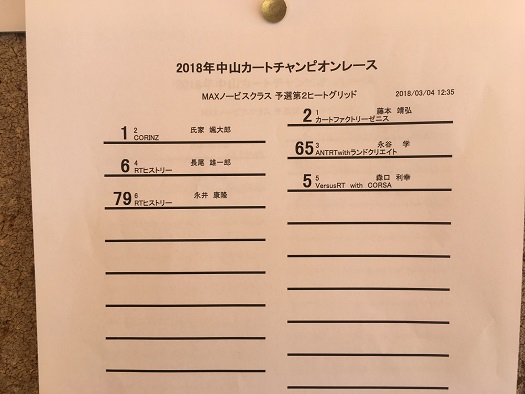 2018年中山カートチャンピオンレース
MAXノービスクラス 予選第2ヒートグリッド
2018/03/04 12:35
2 1 藤本 靖弘
カートファクトリーゼニス
1 2 氏家 颯太郎
CORINZ
65 3 永谷 学
ANTRTwithランドクリエイト
6 4 長尾 雄一郎
RTヒストリー
5 5 森口 利幸
VersusRT with CORSA
79 6 永井 康隆
RTヒストリー